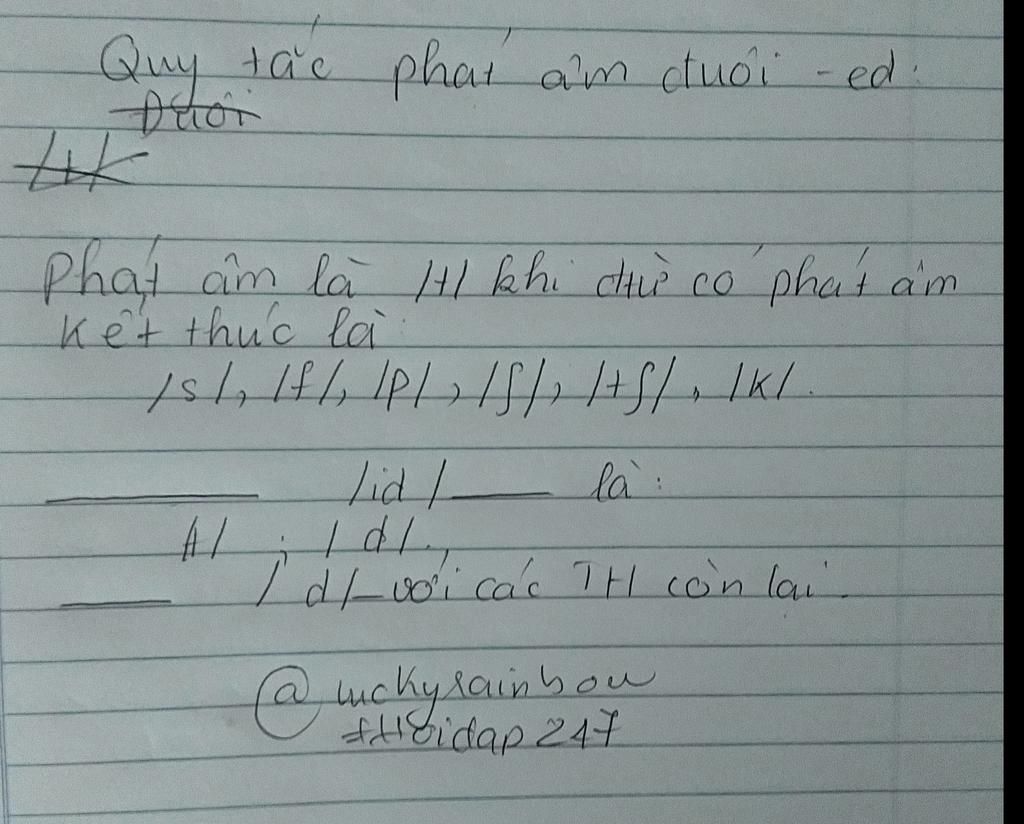 Quy tắc phát âm đuôi -ed:
Đuôi
Phát âm là /t/ khi từ có phát âm
kết thúc là:
/s/, /f/, /p/, /ʃ/, /tʃ/, /k/.
——— /id/ —— là:
/t/ ; /d/.,
—— /d/ – với các TH còn lại.
@luckyrainbow
#Hỏidap247